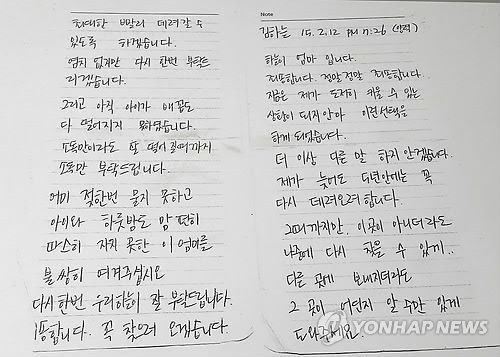 최대한 빨리 데려갈 수
있도록 하겠습니다.
염치 없지만 다시 한번 부탁드
리겠습니다.
그리고 아직 아이가 배꼽도
다 떨어지지 못하였습니다.
소독만이라도 잘 떨어질때까지
소독만 부탁드립니다.
어미 젖한번 물지 못하고
아이와 하룻밤도 맘 편히
따스히 자지 못한 이 엄마를
불쌍히 여겨주십시오
다시한번 우리하늘이 잘 부탁드립니다.
죄송합니다. 꼭 찾으러 오겠습니다.
Note
김하늘 15. 2. 12 PM 7:26 (양력)
하늘이 엄마 입니다.
죄송합니다. 정말정말 죄송합니다.
지금은 제가 도저히 키울 수 있는
상황이 되지않아 이런선택을
하게 되었습니다.
더 이상 다른 말 하지 않겠습니다.
제가 늦어도 5년안에는 꼭
다시 데려오려 합니다.
그때까지만, 이곳이 아니더라도
나중에 다시 찾을 수 있게..
다른 곳에 보내지더라도
그 곳이 어딘지 알 수만 있게
도와주세요.
YONHAP NEWS